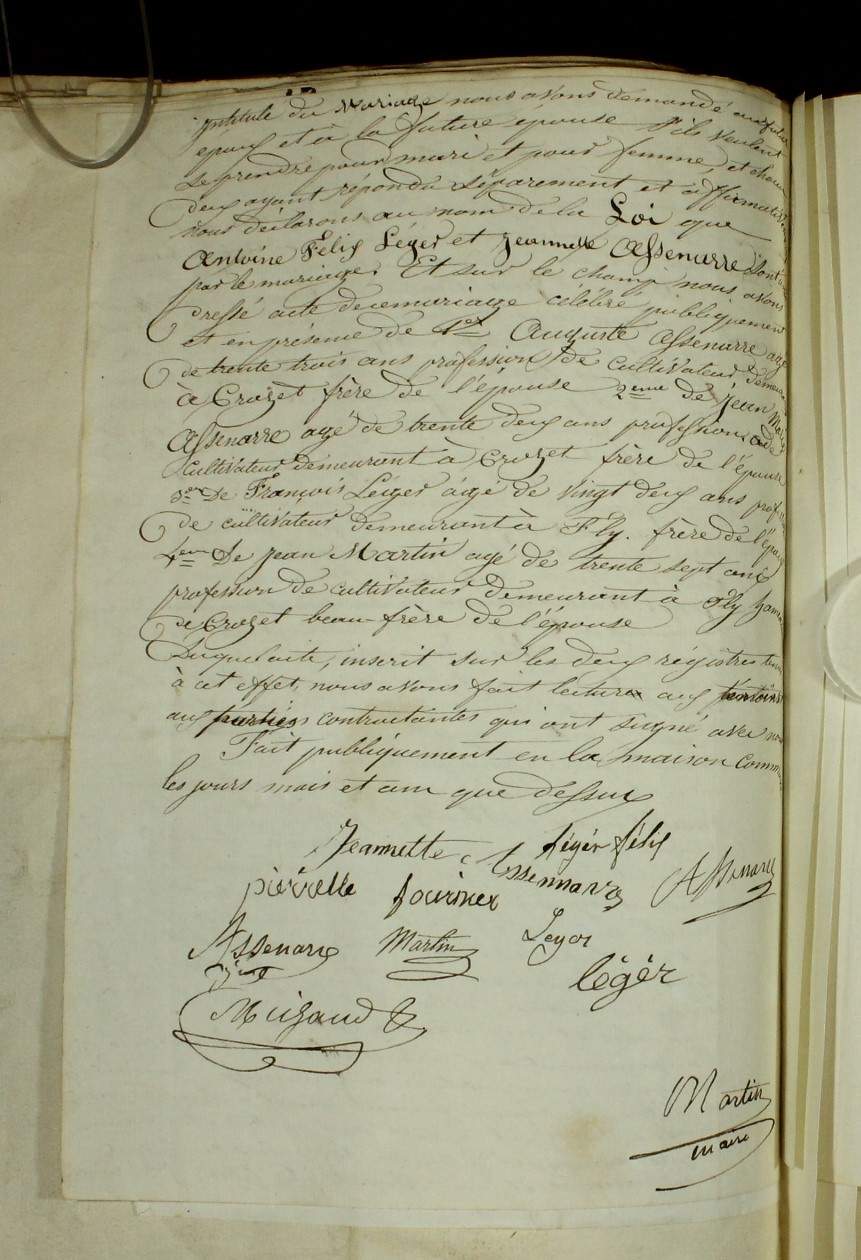 intitulé du Mariage nous avons demandé au futur
epoux et à la future épouse s'ils veulent
se prendre pour mari et pour femme, et chacun
deux ayant répondu séparement et affirmativ
nous déclarons au nom de la Loi que
Antoine Félix Léger et Jeannette Assenarre sont unis
par le mariage. Et sur le champ nous avons
dressé acte de ce mariage célébré publiquement
et en présence de 1er Auguste Assenarre agé
de trente trois ans profession de cultivateur demeurant
à Crozet frère de l'épouse 2eme de Jean Marie
Assenarre agé de trente deux ans profession de
cultivateur demeurant à Crozet frère de l'épouse
3eme De François Léger agé de vingt deux ans profession
de cultivateur demeurant à Fly. frère de l'époux
4eme De Jean Martin agé de trente sept ans
profession de cultivateur demeurant à Fly hameau
de Crozet beau-frère de l'épouse
Duquel acte, inscrit sur les deux régistres tenus
à cet effet, nous avons fait lecture aux témoins
aux parties contractantes qui ont signé avec nous
Fait publiquement en la maison commune
les jours mois et an que dessus
Jeannette Assennare léger félix
pierrette fournier Assenare
Assenare Martin Leger
léger
Migaud
Martin
maire